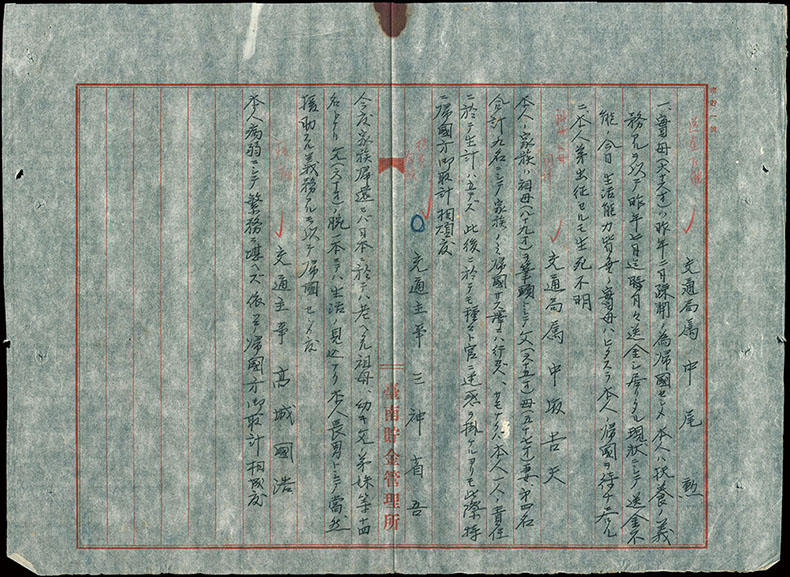 交通局属 中尾勲
一、実母(六十六才)ハ昨年二月疎開ノ為帰国セシメ本人ハ扶養ノ義
務アルヲ以テ昨年七月迄時月々送金シ居リタル現状ニシテ送金不
能ノ今日生活能力皆無ノ実母ハヒタスラ本人ノ帰国ヲ待チ居ル
二、本人弟出征セルモ生死不明
交通局属 中坂吉天
本人ノ家族ハ祖母(八十九才)ヲ筆頭トシテ父(六十五才)母(五十七才)妻、弟四名
合計九名ニシテ家族ノミ帰国サス譯ニハ行カズ、サモナクバ本人一人ノ責任
ニ於テ生計ハ立タズ此後ニ於テモ種々ト官ニ迷惑ヲ掛ケルヨリモ此際特
ニ帰国方御取計相煩度
交通主事 三神省吾
臺南貯金管理所
今度家族帰還セバ日本ニ於テハ老ヘタル祖母、幼キ兄弟妹等十四
名トナリ父(六十才)ノ腕一本ニテハ生活ノ見込ナク本人長男トシテ當然
援助スル義務アルヲ以テ帰国セシメ度
交通主事 高城國浩
本人病弱ニシテ繁務ニ堪ヘズ依而帰国方御取計相成度